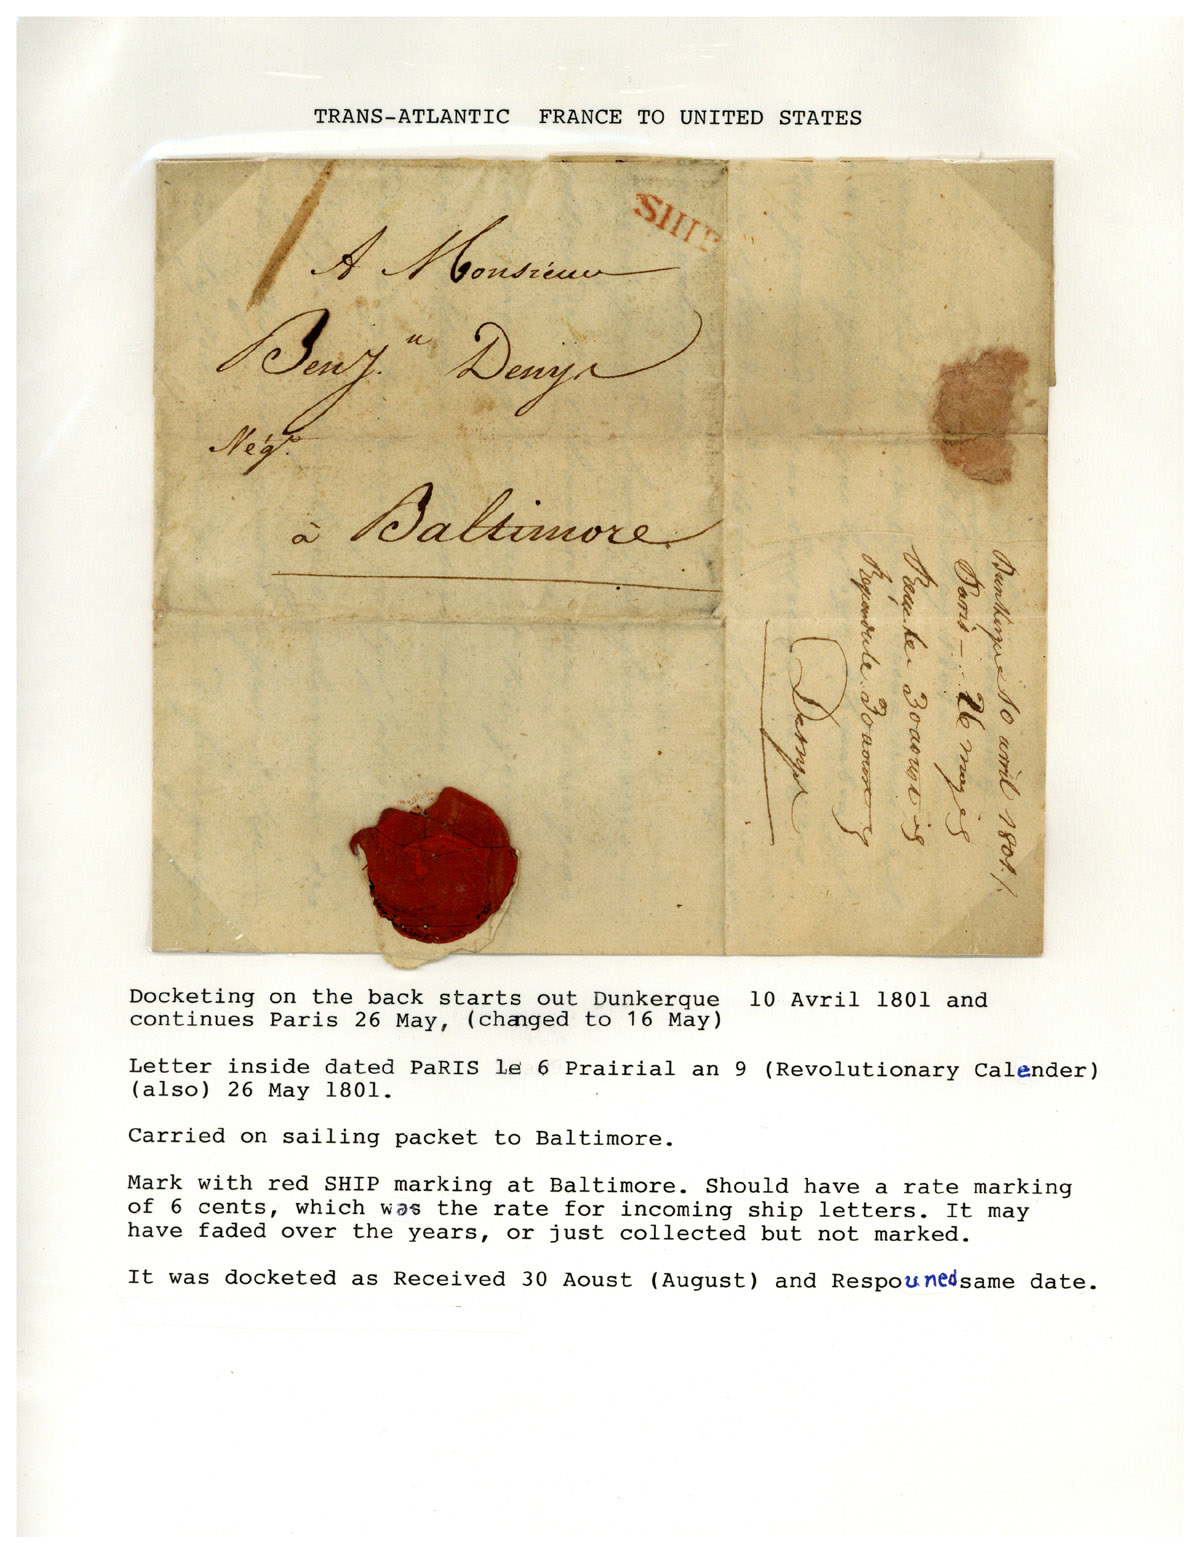 TRANS-ATLANTIC FRANCE TO UNITED STATES
SHIP
A Monsieur
Benj.n Denys
Négt.
à Baltimore
Dunkerque 10 avril 1801./.
Paris — 26 may
Reçu le 30 aoust
Repondu le 30
Denys
Docketing on the back starts out Dunkerque 10 Avril 1801 and
continues Paris 26 May, (changed to 16 May)
Letter inside dated PaRIS le 6 Prairial an 9 (Revolutionary Calender)
(also) 26 May 1801.
Carried on sailing packet to Baltimore.
Mark with red SHIP marking at Baltimore. Should have a rate marking
of 6 cents, which was the rate for incoming ship letters. It may
have faded over the years, or just collected but not marked.
It was docketed as Received 30 Aoust (August) and Respouned same date.